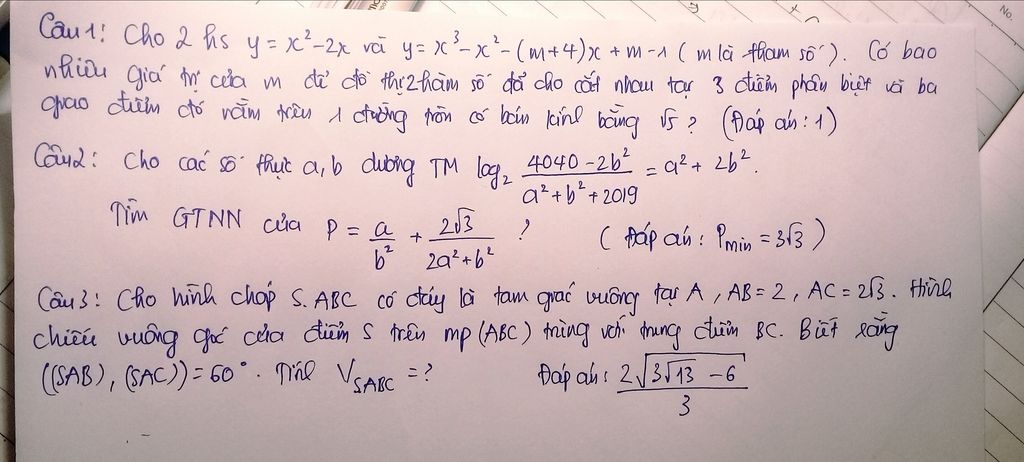 Câu 1: Cho 2 hs y = x² - 2x và y = x³ - x² - (m+4)x + m - 1 (m là tham số). Có bao
nhiêu giá trị của m để đồ thị 2 hàm số đã cho cắt nhau tại 3 điểm phân biệt và ba
giao điểm đó nằm trên 1 đường tròn có bán kính bằng √5? (Đáp án: 1)
Câu 2: Cho các số thực a, b dương TM log₂ (4040 - 2b²)/(a² + b² + 2019) = a² + 2b².
Tìm GTNN của P = a/b² + 2√3/(2a² + b²) ? (Đáp án: Pmin = 3√3)
Câu 3: Cho hình chóp S.ABC có đáy là tam giác vuông tại A, AB = 2, AC = 2√3. Hình
chiếu vuông góc của điểm S trên mp (ABC) trùng với trung điểm BC. Biết rằng
((SAB), (SAC)) = 60°. Tính V_SABC = ? Đáp án: 2√(3√13 - 6)/3